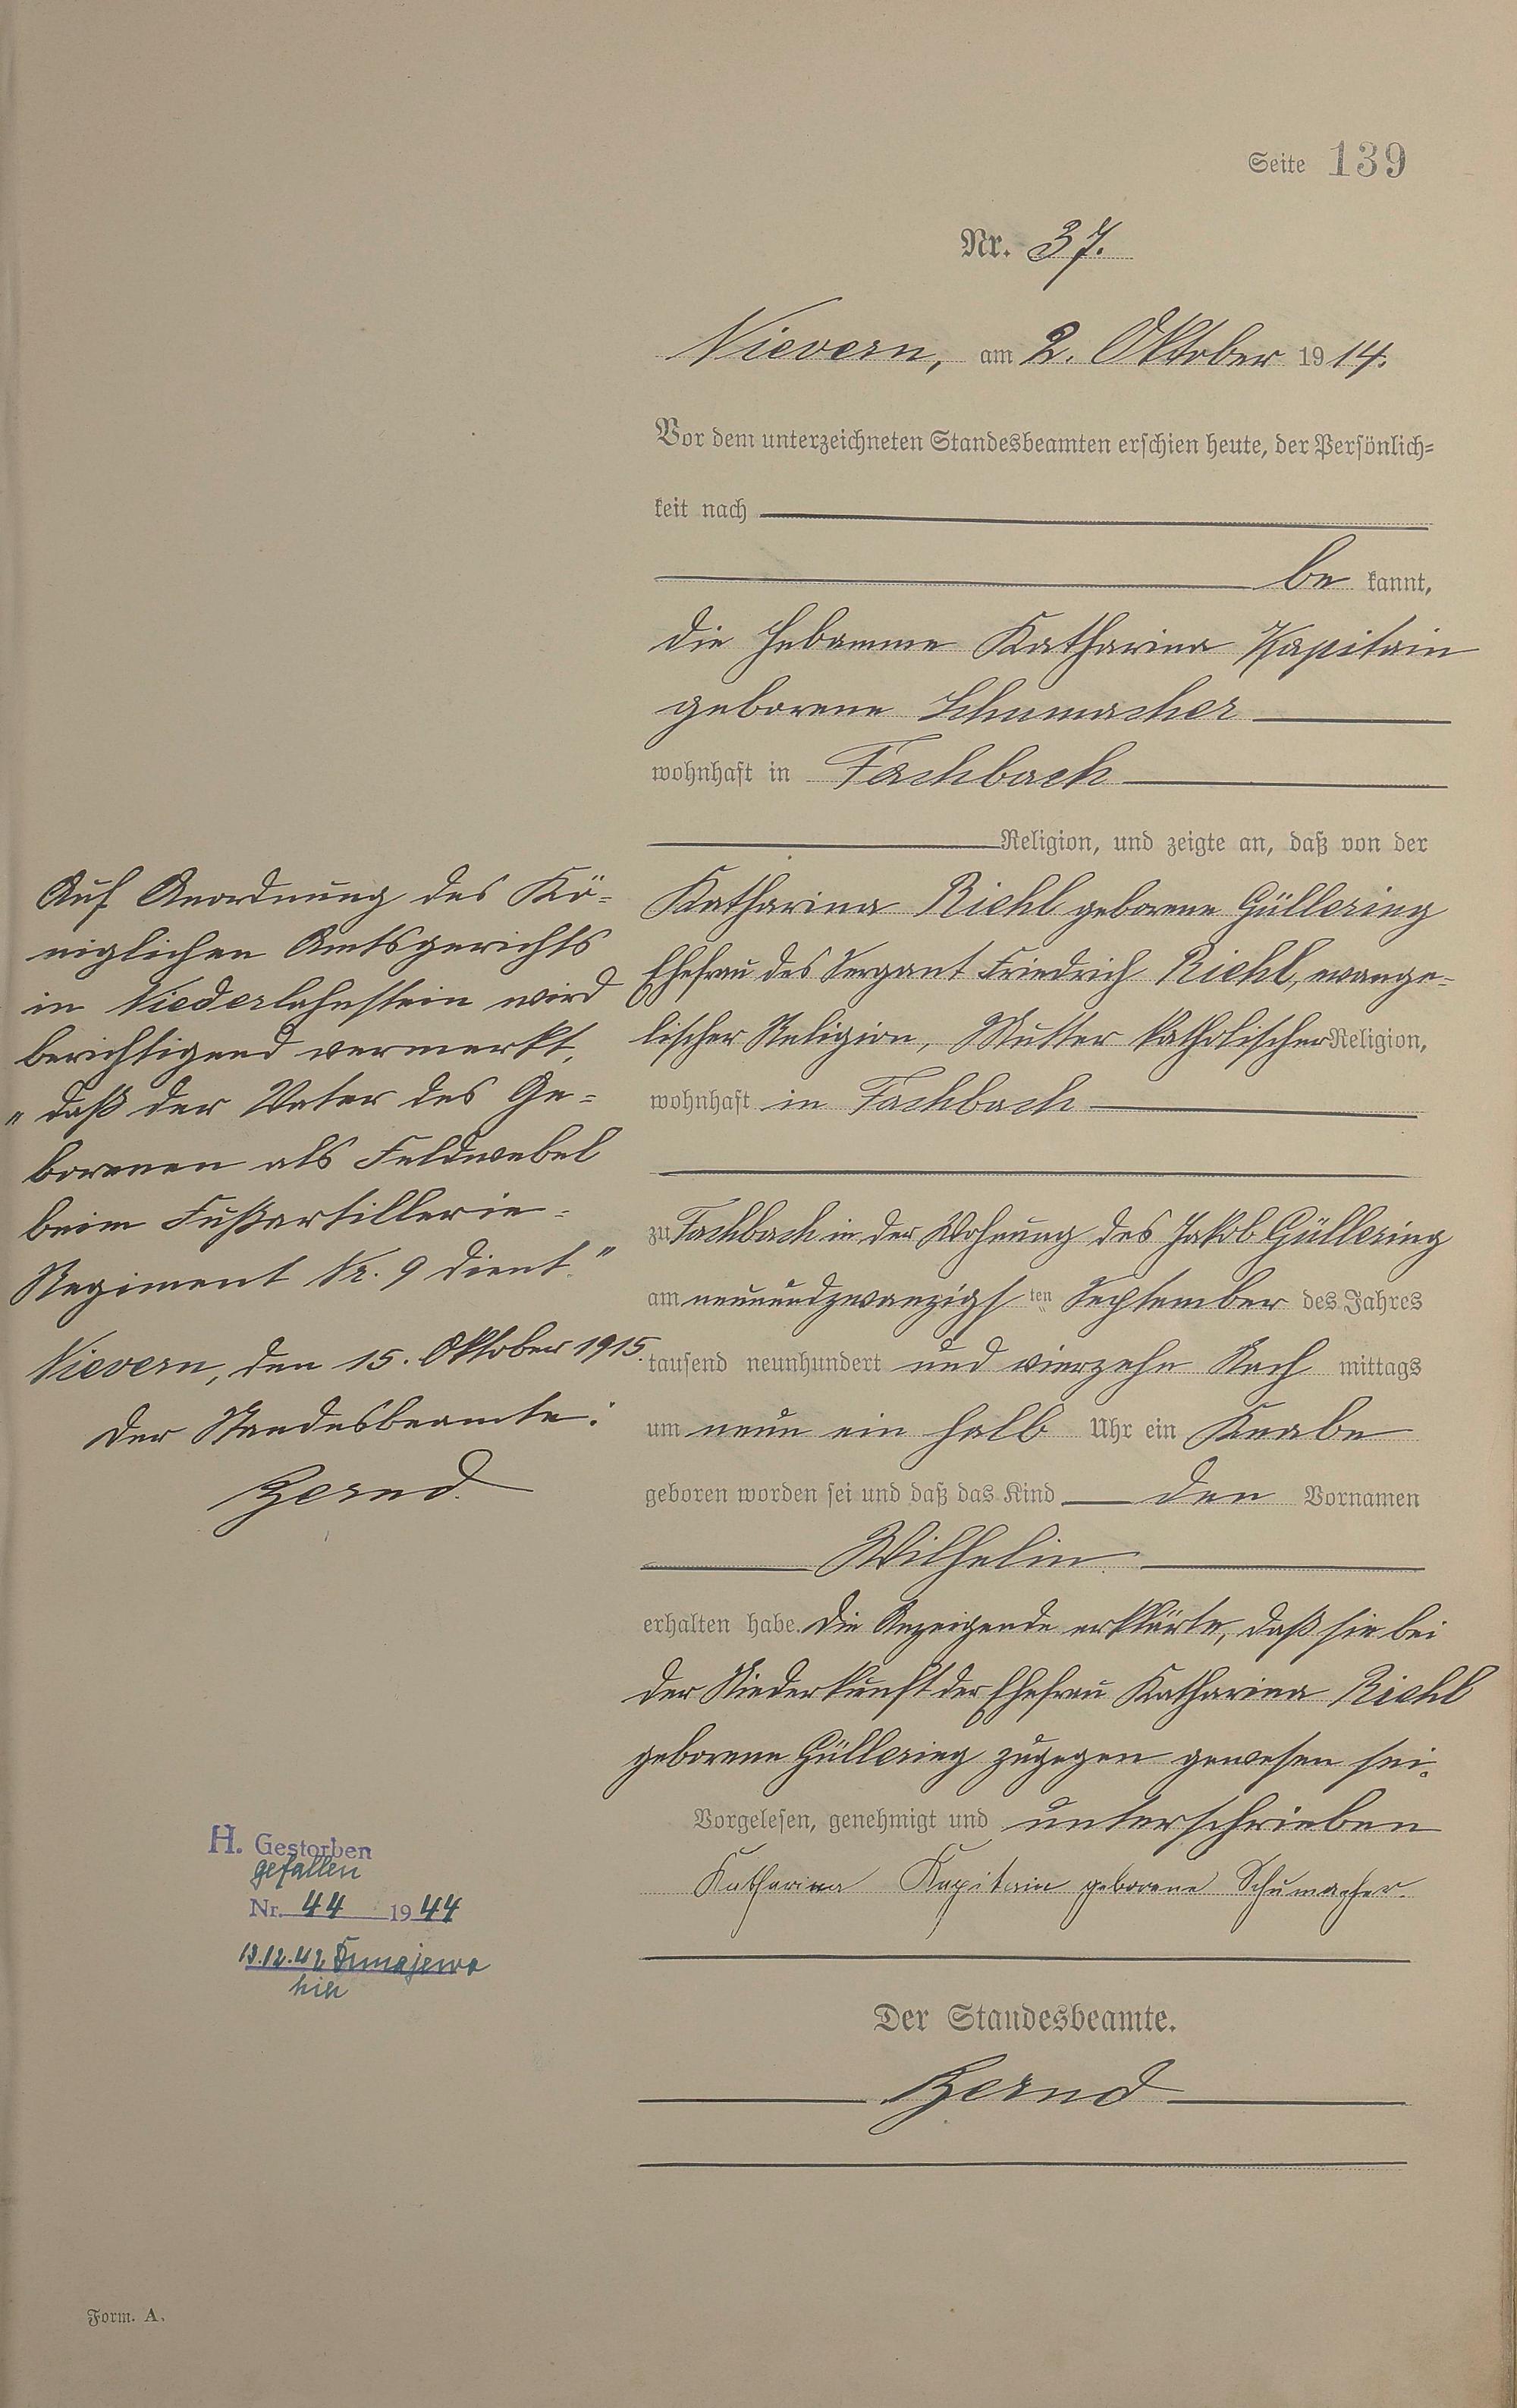 Seite 139
Nr. 37.
Nievern, am 2. Oktober 1914.
Vor dem unterzeichneten Standesbeamten erschien heute, der Persönlich=
keit nach
be kannt,
die Hebamme Katharina Kapitain
geborene Schumacher
wohnhaft in Fachbach
Religion, und zeigte an, daß von der
Katharina Riehl geborene Güllering
Ehefrau des Sergant Friedrich Riehl, evange-
lischer Religion, Mutter katholischer Religion,
wohnhaft in Fachbach
zu Fachbach in der Wohnung des Jakob Güllering
am neunundzwanzigs ten September des Jahres
tausend neunhundert und vierzehn Nach mittags
um neun ein halb Uhr ein Knabe
geboren worden sei und daß das Kind den Vornamen
Wilhelm
erhalten habe. Die Anzeigende erklärte, daß sie bei
der Niederkunft der Ehefrau Katharina Riehl
geborene Güllering zugegen gewesen sei.
Vorgelesen, genehmigt und unterschrieben
Katharina Kapitain geborene Schumacher.
Der Standesbeamte.
Zernd
Auf Anordnung des Kö-
niglichen Amtsgerichts
in Niederlahnstein wird
berichtigend vermerkt,
"daß der Vater des Ge-
borenen als Feldwebel
beim Fußartillerie-
Regiment Nr. 9 dient."
Nievern, den 15. Oktober 1915.
Der Standesbeamte:
Zernd.
H. Gestorben
gefallen
Nr. 44 1944
13.12.42
Form. A.